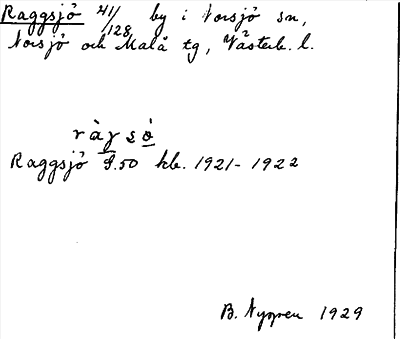 Raggsjö 41/128, by i Norsjö sn,
Norsjö och Malå tg, Västerb. l.
Raggsjö S.50 kb. 1921-1922
B. Nygren 1929